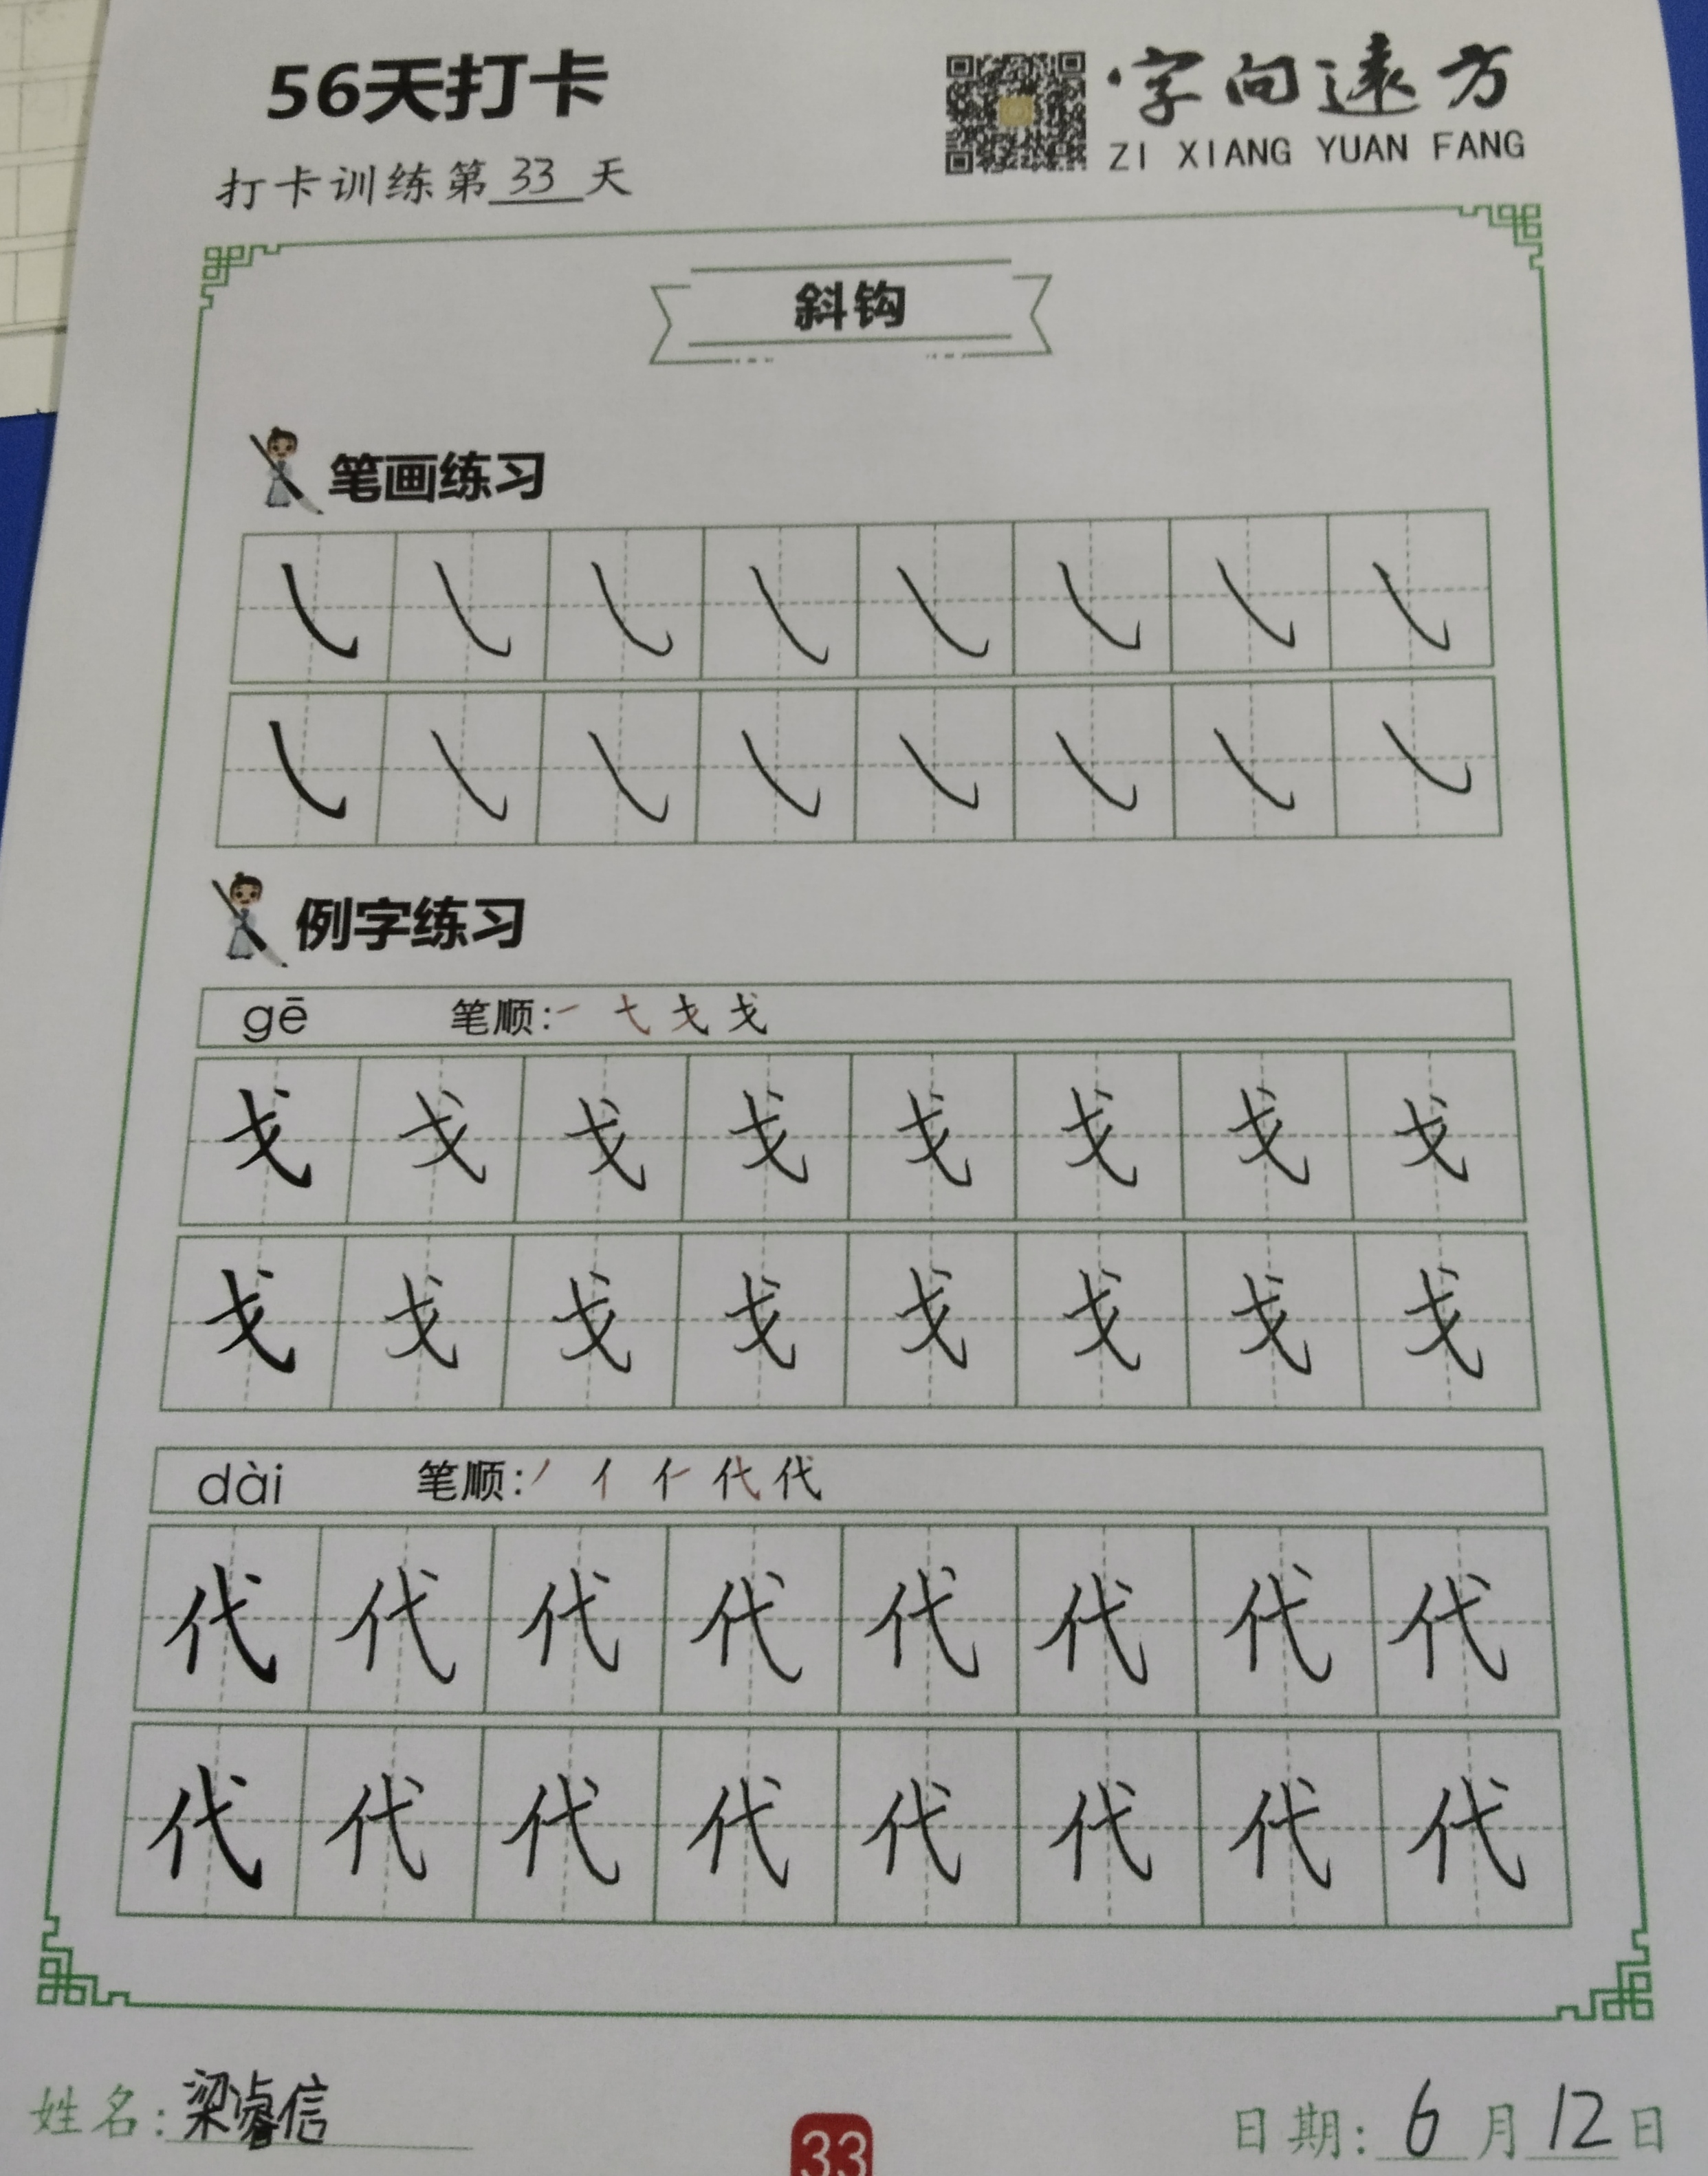 56天打卡
字向遠方
ZI XIANG YUAN FANG
打卡训练第33天
斜钩
笔画练习
㇂ ㇂ ㇂ ㇂ ㇂ ㇂ ㇂ ㇂
㇂ ㇂ ㇂ ㇂ ㇂ ㇂ ㇂ ㇂
例字练习
gē 笔顺: 一 七 戈 戈
戈 戈 戈 戈 戈 戈 戈 戈
戈 戈 戈 戈 戈 戈 戈 戈
dài 笔顺: 丿 亻 代 代
代 代 代 代 代 代 代 代
代 代 代 代 代 代 代 代
姓名: 梁睿信
33
日期: 6月12日